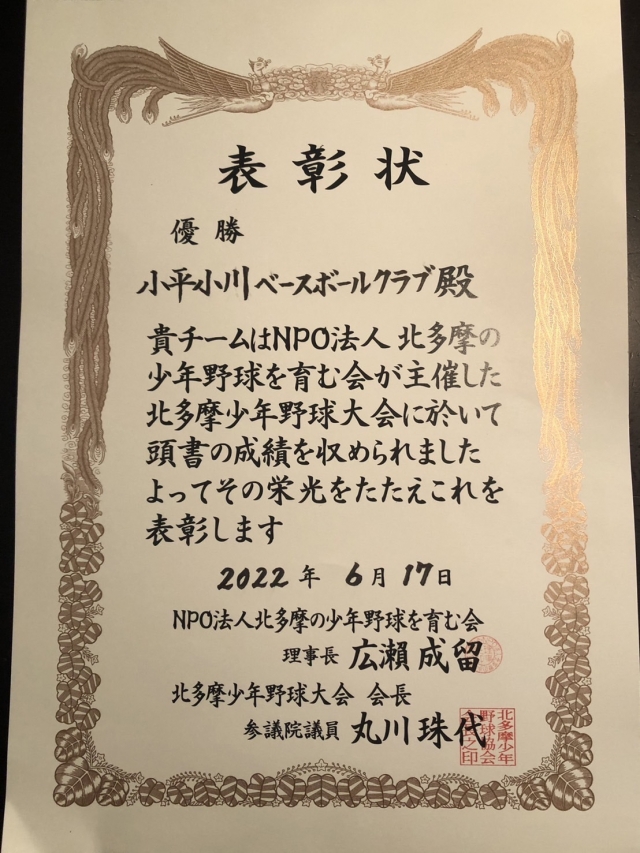 表彰状
優勝
小平小川ベースボールクラブ殿
貴チームはNPO法人 北多摩の
少年野球を育む会が主催した
北多摩少年野球大会に於いて
頭書の成績を収められました
よってその栄光をたたえこれを
表彰します
2022年 6月 17日
NPO法人北多摩の少年野球を育む会
理事長 広瀬成留
北多摩少年野球大会 会長
参議院議員 丸川珠代
北多摩少年
野球協会
之印